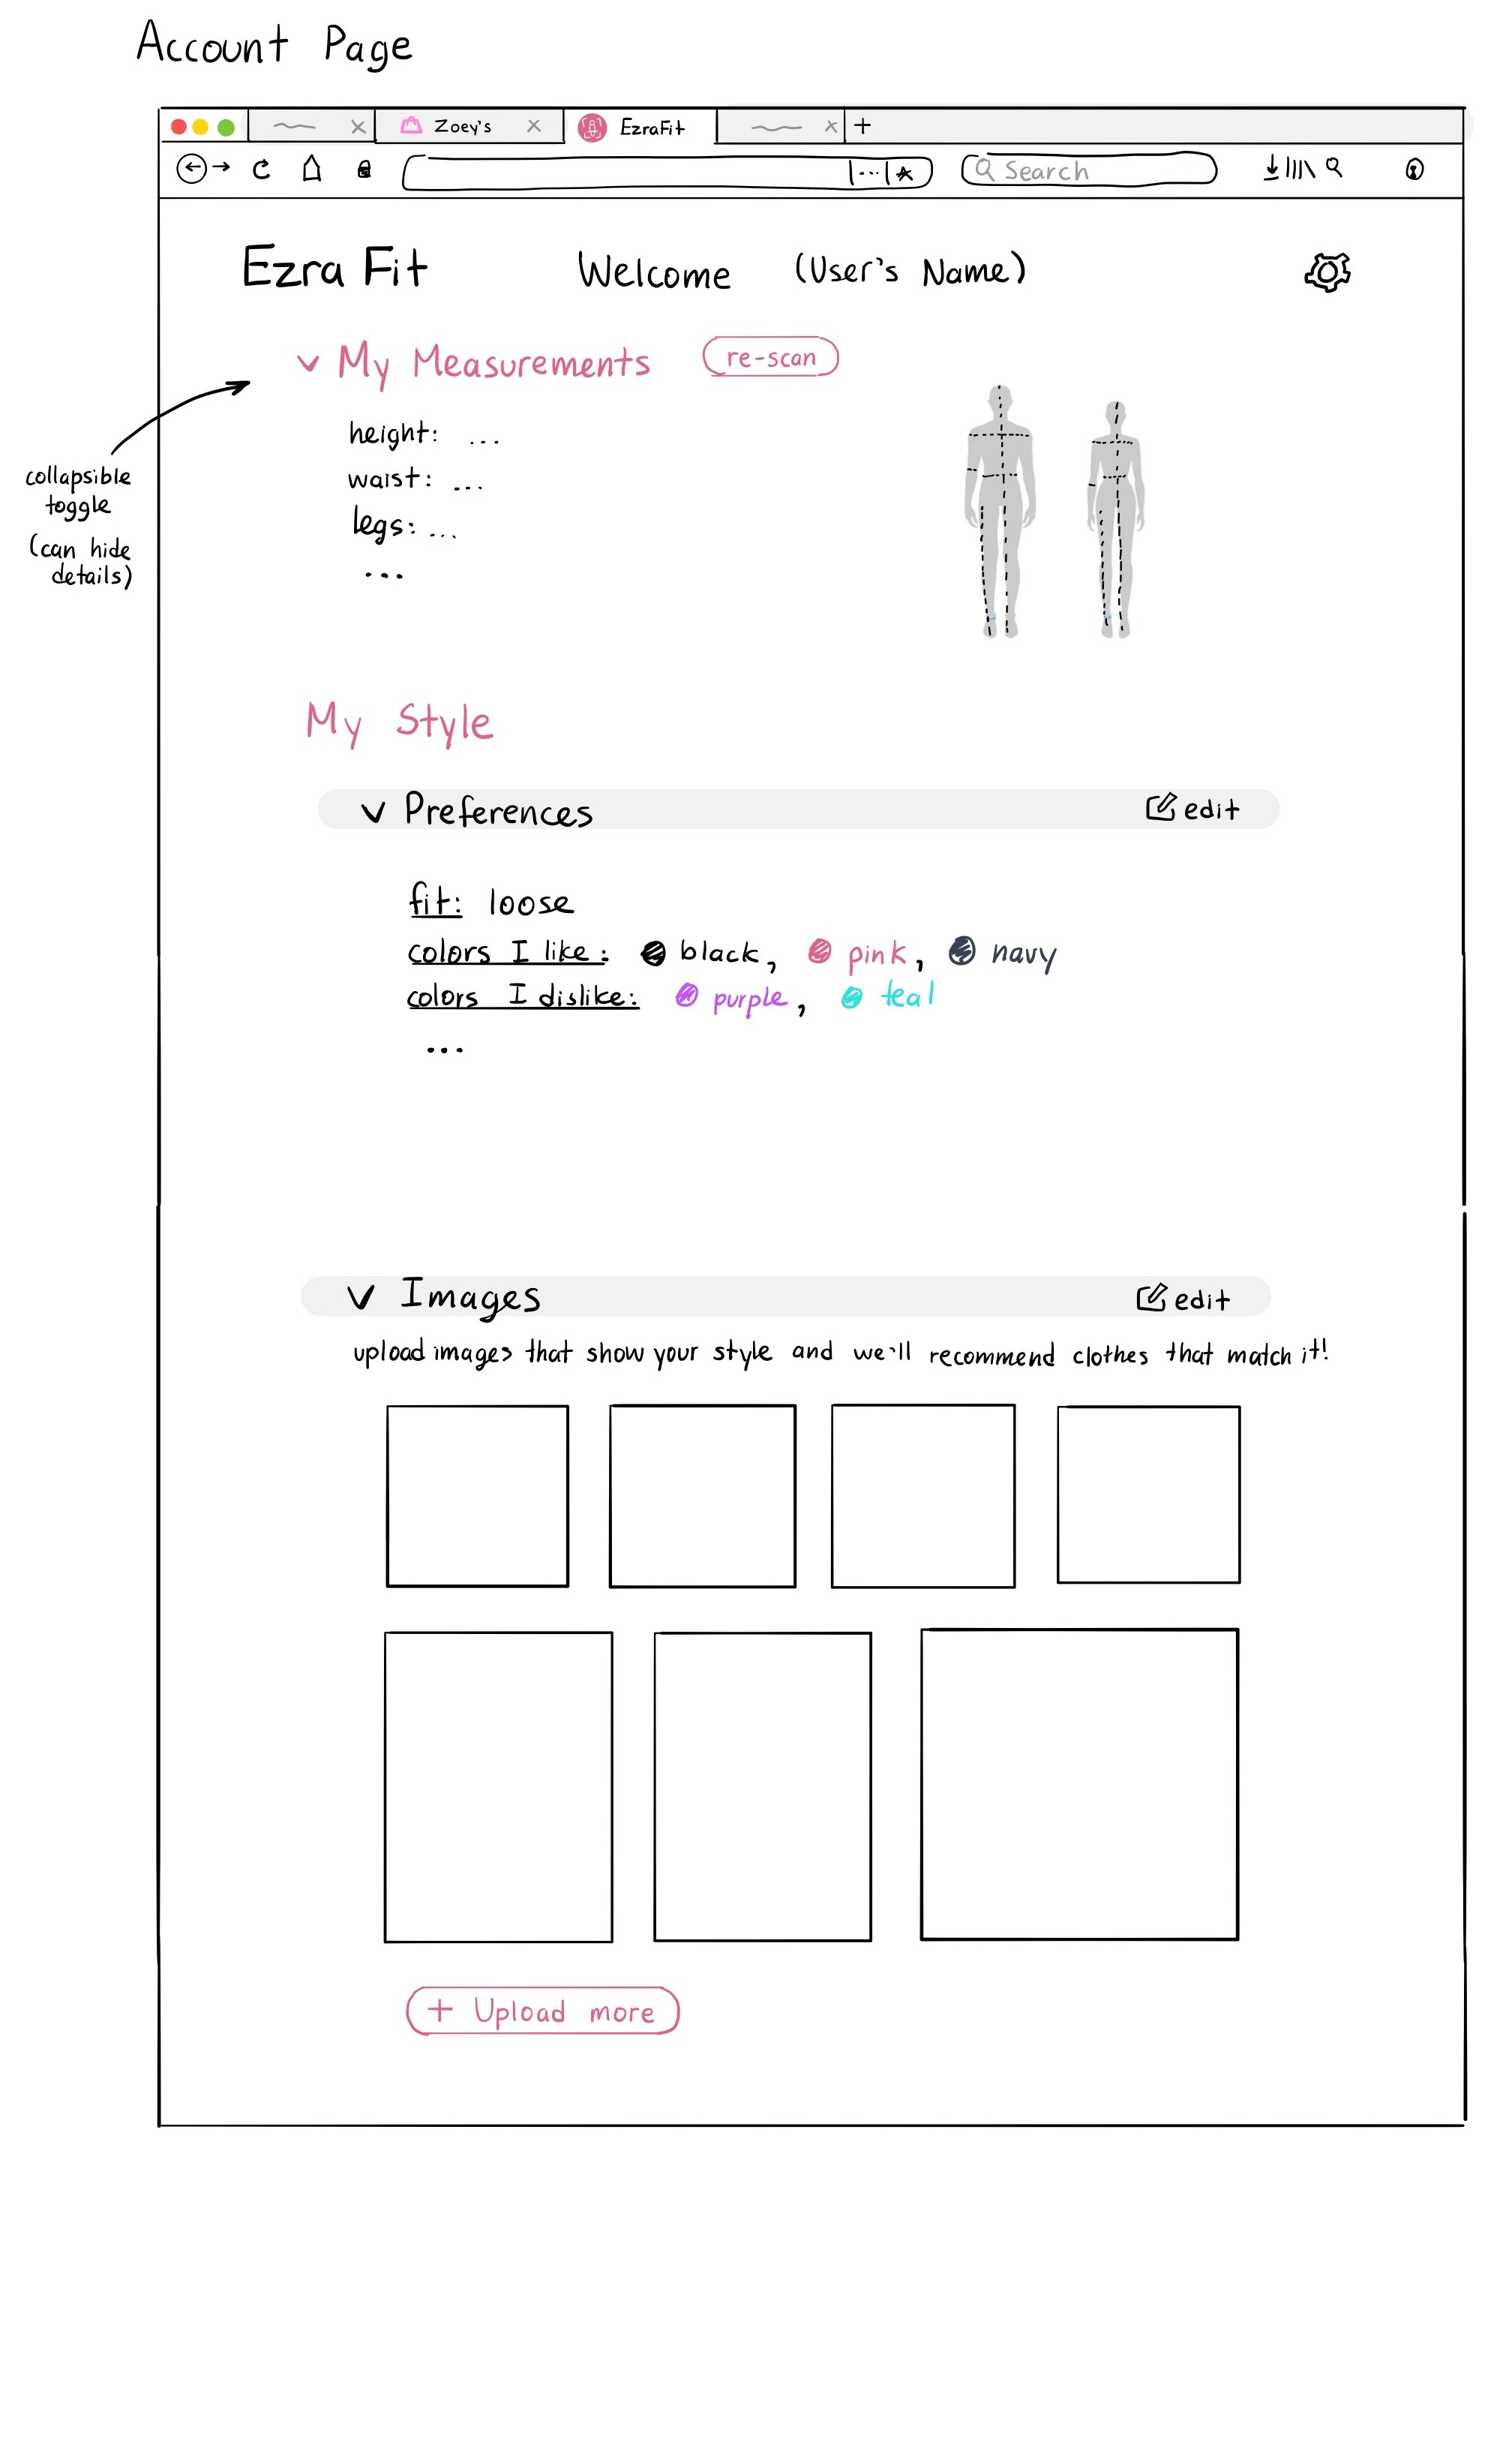 Account Page
Zoey's
EzraFit
Search
Ezra Fit Welcome (User's Name)
My Measurements re-scan
height: ...
waist: ...
legs: ...
...
collapsible
toggle
(can hide
details)
My Style
Preferences edit
fit: loose
colors I like: black, pink, navy
colors I dislike: purple, teal
...
Images edit
upload images that show your style and we'll recommend clothes that match it!
+ Upload more